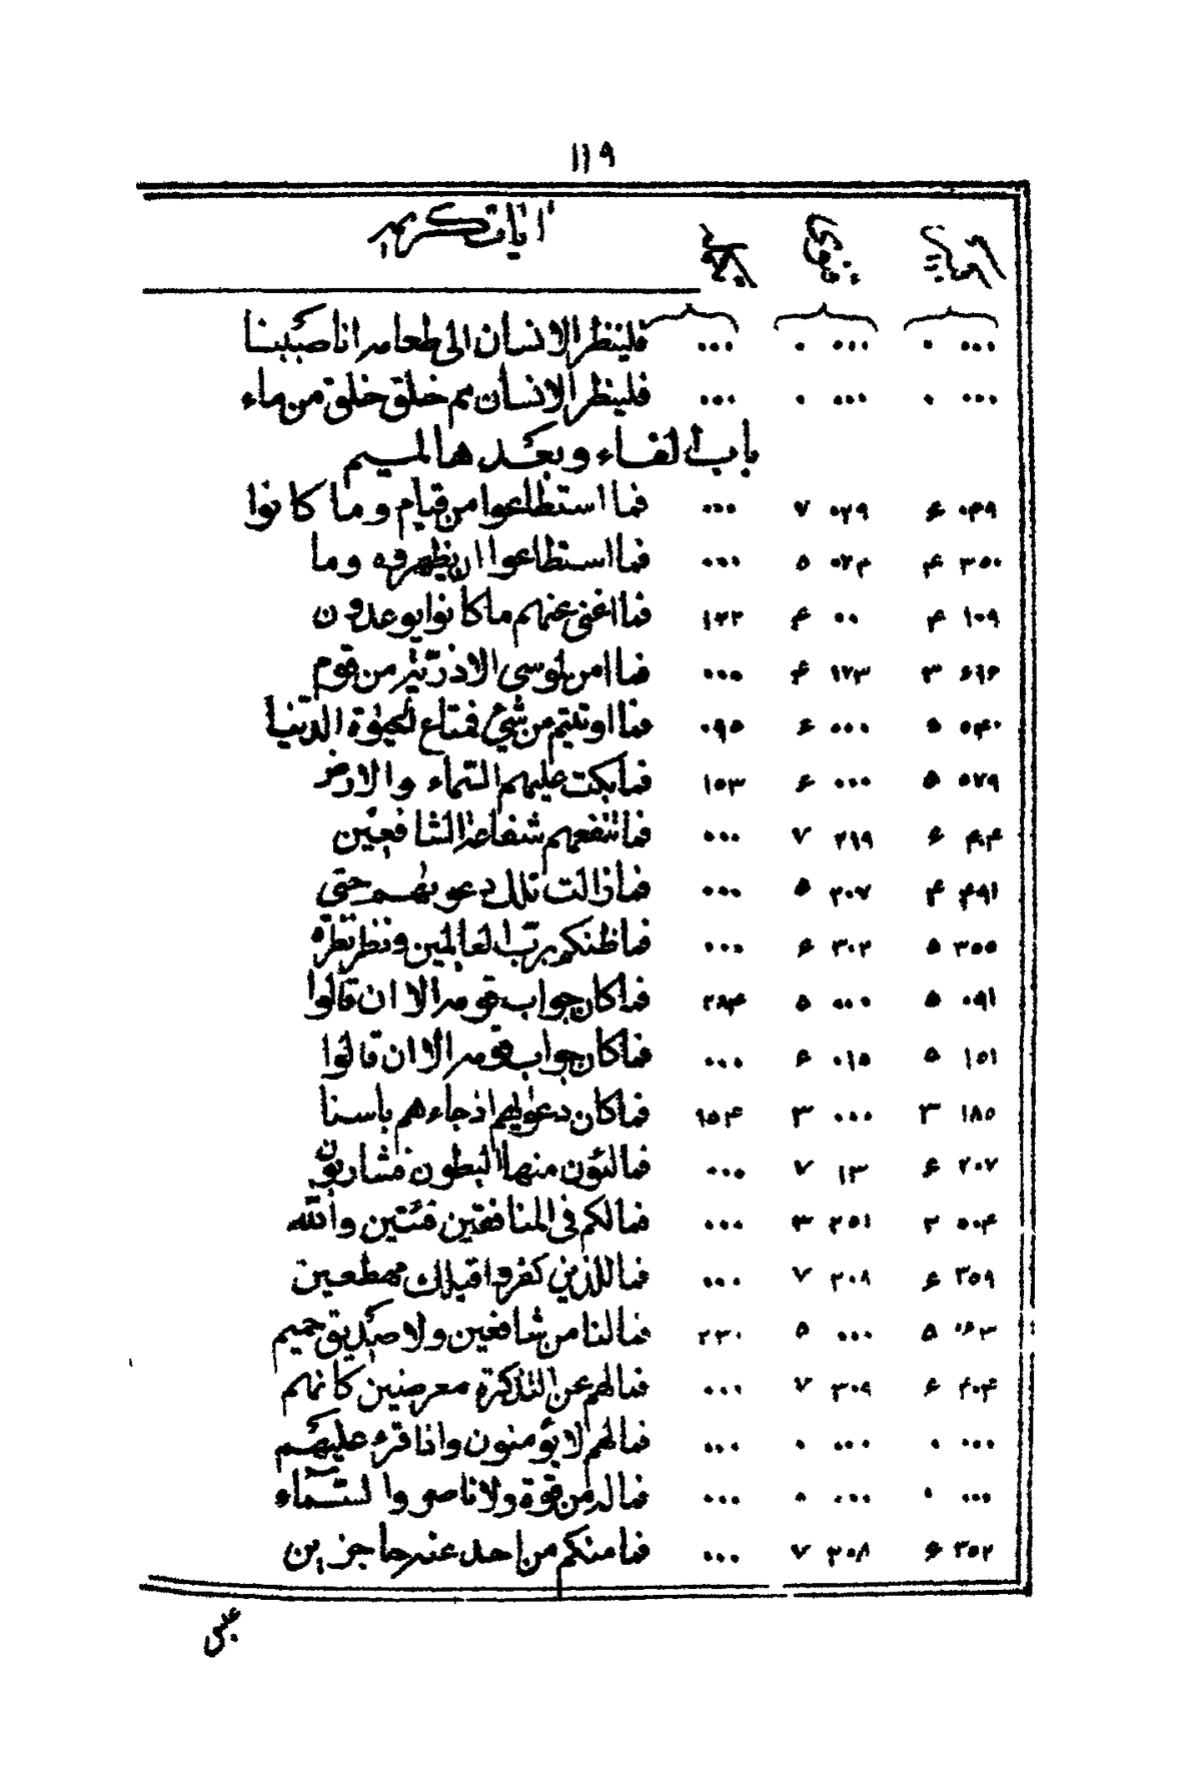 ١١٩
ايات كريمه
٠٠٠ ٠ ٠٠٠ ٠ ٠٠٠ فلينظر الانسان الى طعامه انا صببنا
٠٠٠ ٠ ٠٠٠ ٠ ٠٠٠ فلينظر الانسان مم خلق خلق من ماء
باب الفاء وبعدها الميم
٠٤٩ ۶ ٠٢٩ ٧ ٠٠٠ فما استطاعوا من قيام وما كانوا
٣٥٠ ۴ ٠٢۴ ۵ ٠٠٠ فما اسطاعوا ان يظهروه وما
١٠٩ ۴ ٠٠ ۶ ١٢٢ فما اغنى عنهم ما كانوا يوعدون
۶٩۶ ٣ ١٧٣ ۴ ٠٠٠ فما امن لموسى الا ذرية من قوم
٥۴٠ ۵ ٠٠٠ ۶ ٠٩٥ فما اوتيتم من شئ فمتاع الحيوة الدنيا
٥٧٩ ۵ ٠٠٠ ۶ ١٥٣ فما بكت عليهم السماء والارض
۴٠۴ ۶ ٢٩٩ ٧ ٠٠٠ فما تنفعهم شفاعة الشافعين
۴٩١ ۴ ٢٠٧ ۵ ٠٠٠ فما زالت تلك دعويهم حتى
٣٥٥ ۵ ٣٠٢ ۶ ٠٠٠ فما ظنكم برب العالمين فنظر نظرة
٠٩١ ۵ ٠٠٠ ۵ ٢٨۴ فما كان جواب قومه الا ان قالوا
١٥١ ۵ ٠١٥ ۶ ٠٠٠ فما كان جواب قومه الا ان قالوا
١٨٥ ٣ ٠٠٠ ٣ ٩٥۴ فما كان دعويهم اذ جاءهم باسنا
٢٠٧ ۶ ١٣ ٧ ٠٠٠ فمالئون منها البطون فشاربون
٥٠۴ ٢ ٢٥١ ٣ ٠٠٠ فما لكم فى المنافقين فئتين والله
٣٥٩ ۶ ٢٠٨ ٧ ٠٠٠ فمال الذين كفروا قبلك مهطعين
٠۶٣ ۵ ٠٠٠ ۵ ٢٣٠ فمالنا من شافعين ولا صديق حميم
۴٠۴ ۶ ٣٠٩ ٧ ٠٠٠ فمالهم عن التذكرة معرضين كانهم
٠٠٠ ٠ ٠٠٠ ٠ ٠٠٠ فمالهم لا يؤمنون واذا قرء عليهم
٠٠٠ ٠ ٠٠٠ ٠ ٠٠٠ فماله من قوة ولا ناصر والسماء
٣٥٢ ۶ ٢٠٨ ٧ ٠٠٠ فما منكم من احد عنه حاجزين